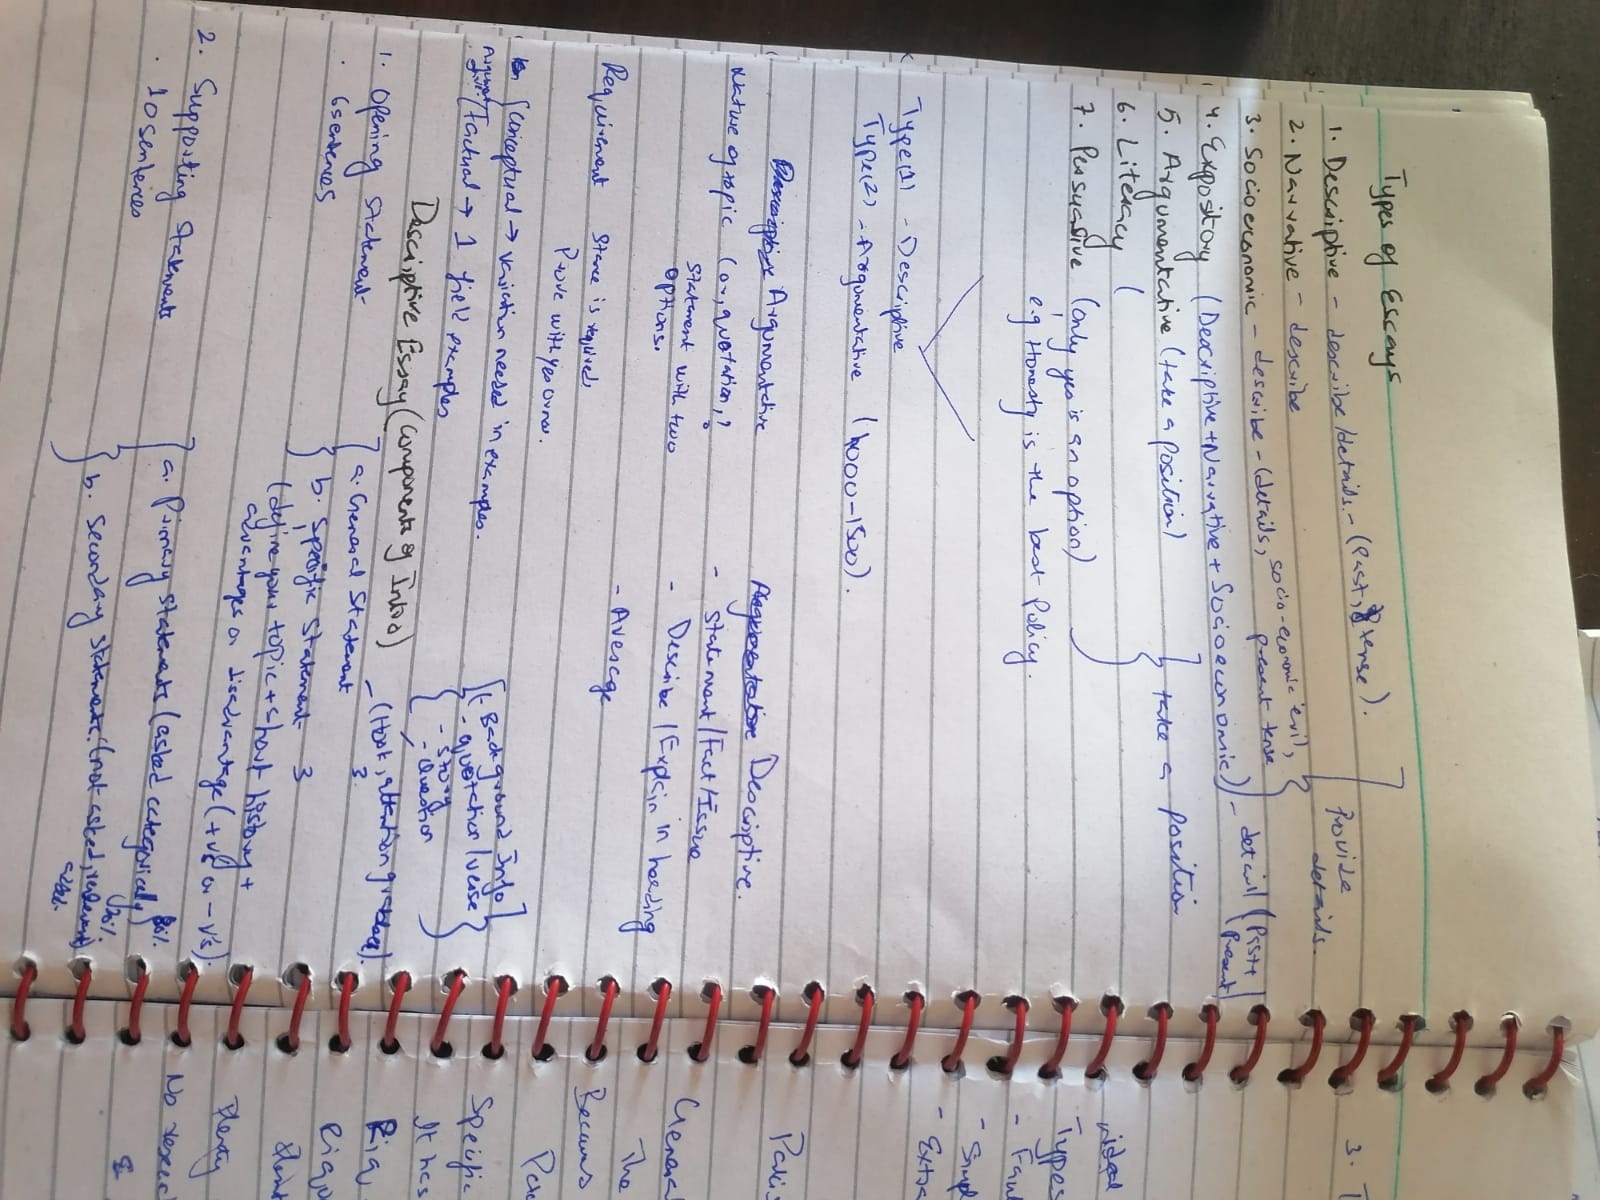 Types of Essays
1. Descriptive - describe/details. - (Past, tense).
Provide details.
2. Narrative - describe
3. Socioeconomic - describe - (details, socio-economic evil, present tense
4. Expository (Descriptive + Narrative + Socioeconomic) - detail (Past + Present)
5. Argumentative (take a position)
take a position
6. Literacy (
7. Persuasive (only yes is an option)
e.g Honesty is the best Policy.
Type(1) - Descriptive
Type(2) - Argumentative (1000-1500).
Argumentative
Nature of topic (or, quotation, ?
statement with two
options.
Requirement Stance is required
Prove with yes or no.
Descriptive.
- Statement/Fact/Issue
- Describe/Explain in heading
- Average
Conceptual → variation needed in examples.
Factual → 1 field examples
- Background Info
- quotation/verse
- Story
- Question
Descriptive Essay (Components of Intro)
1. Opening statement
. 6 sentences
a. General Statement - (Hook, attention grabber). 3
b. Specific Statement 3
(define your topic + short history +
advantages or disadvantage (+v's or -v's).
2. Supporting Statements
. 10 sentences
a. Primary statements (asked categorically) 80%.
b. Secondary statements. (not asked, relevant) 20%.
3. T
Types
- Simpl
- Extra
General
The
Because
Specific
It has
Plenty